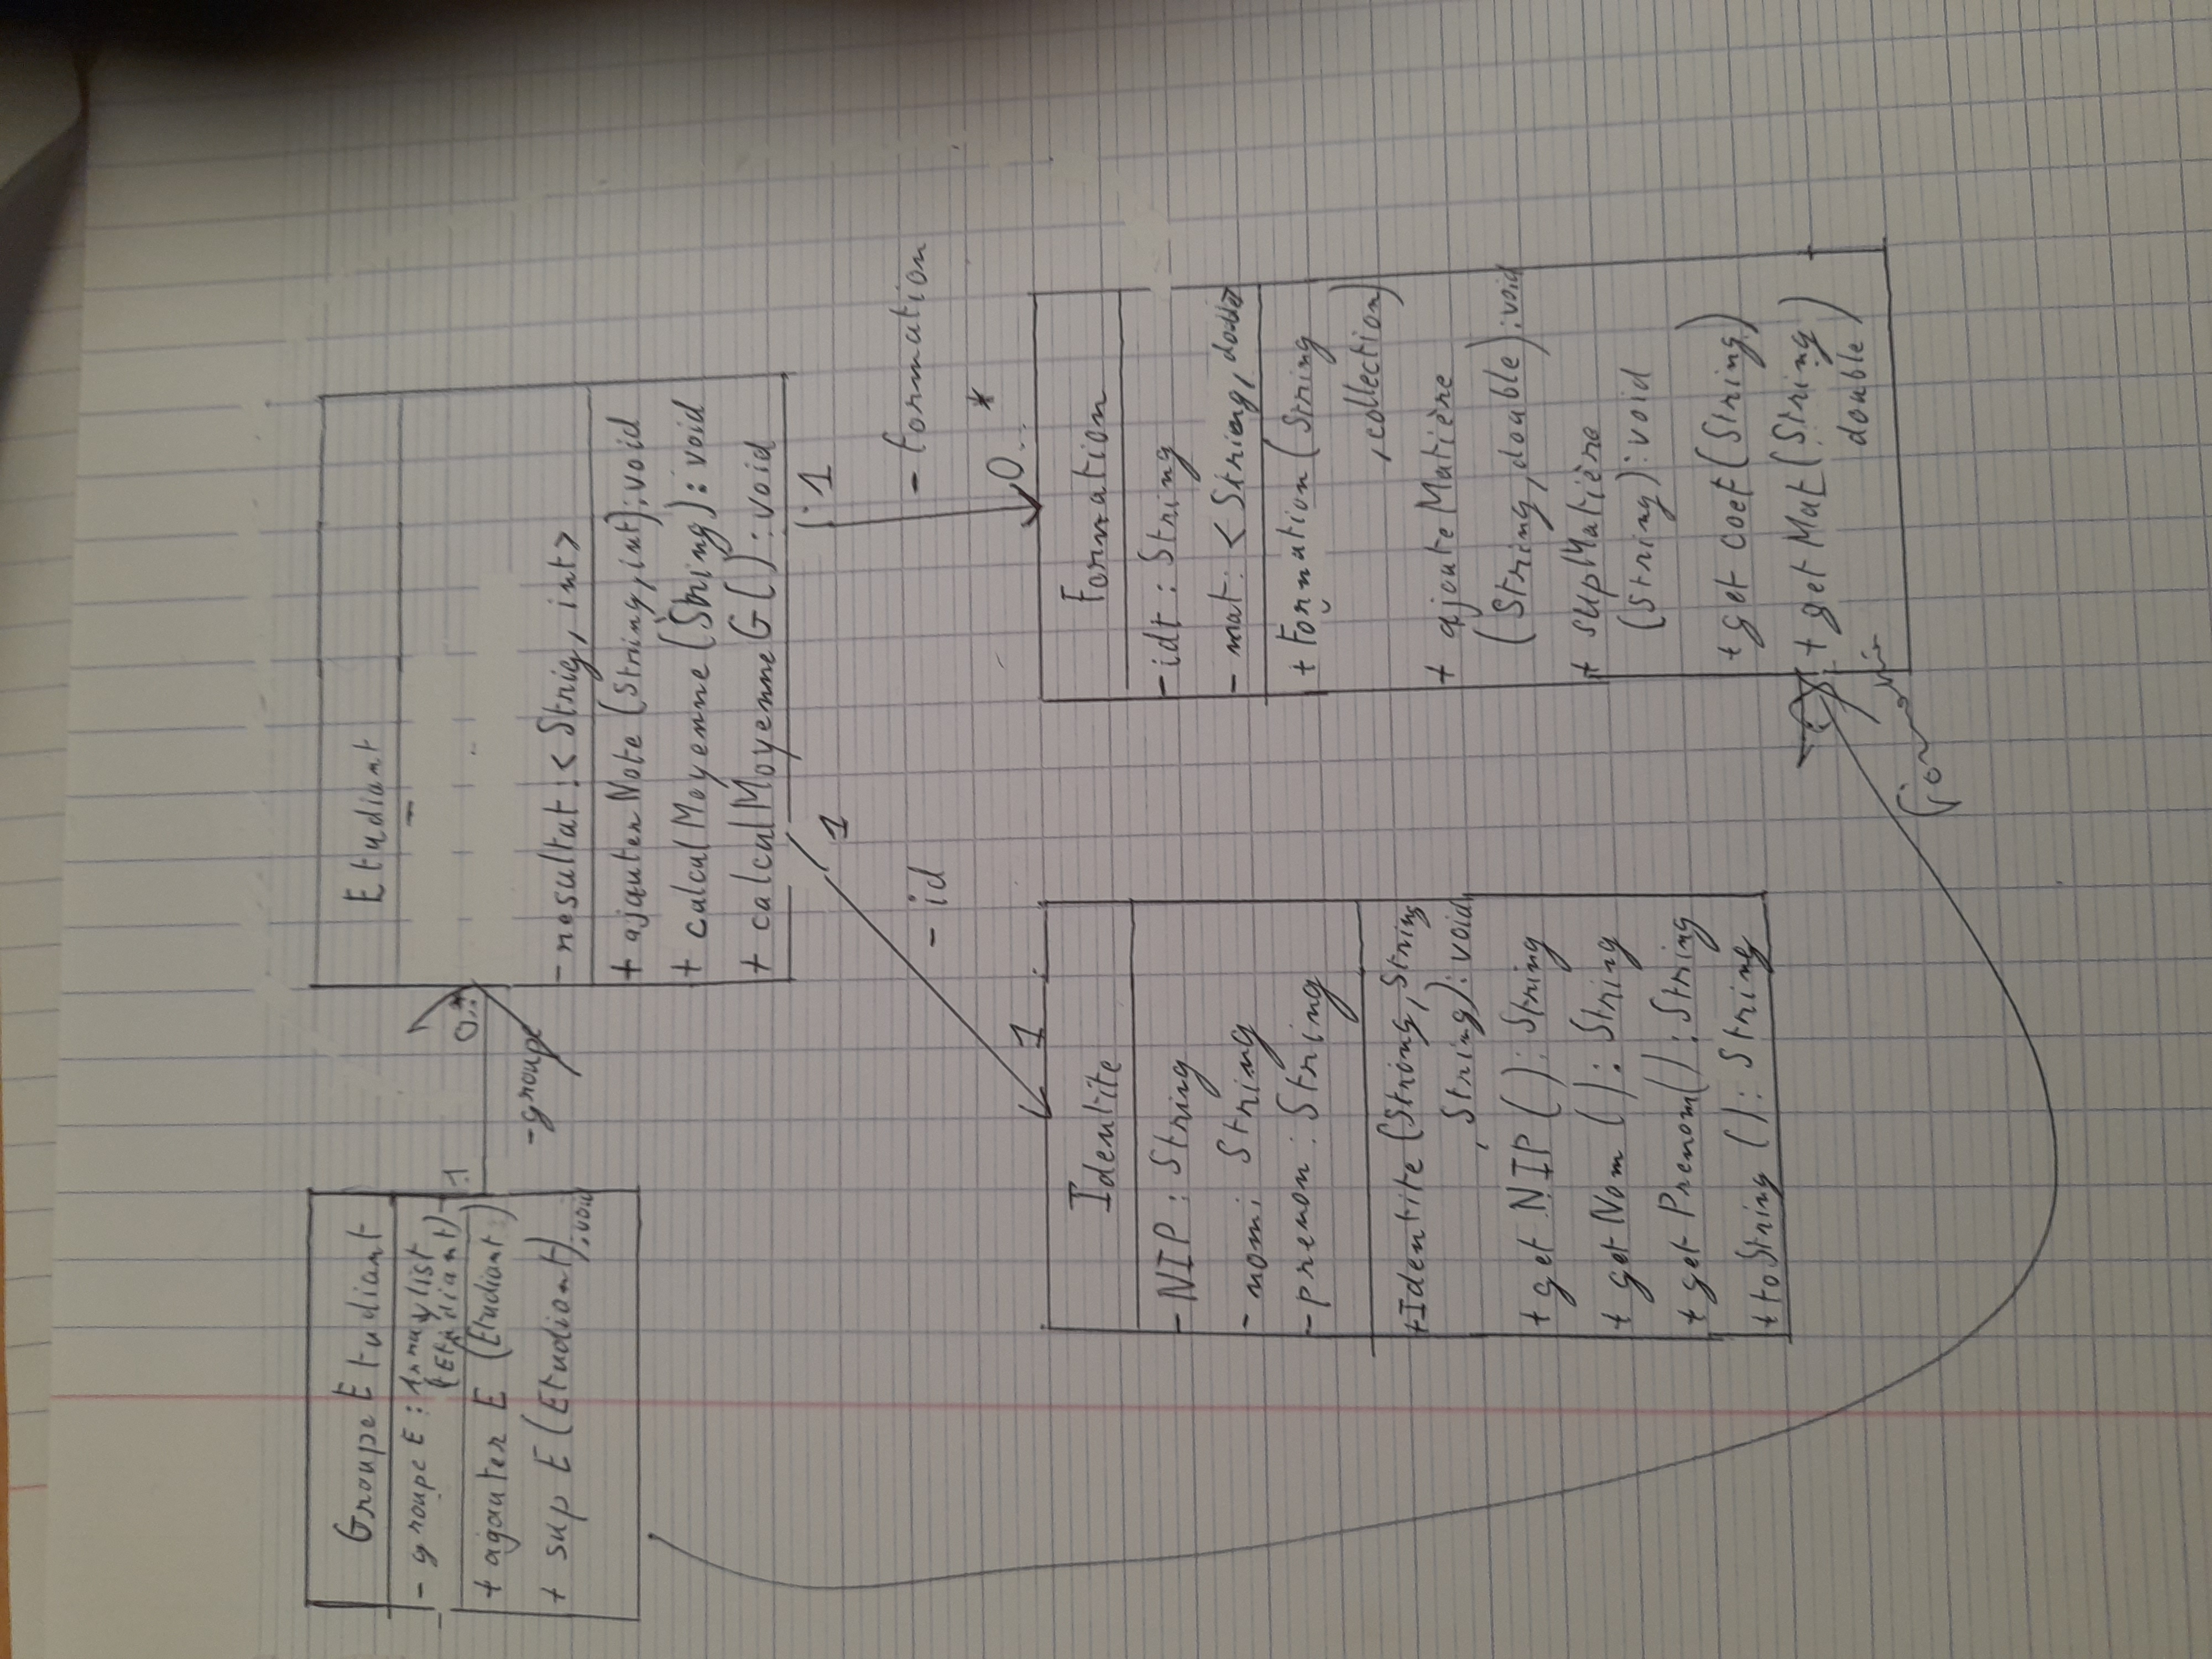 Groupe Etudiant
- groupe E : Arraylist
(Etudiant)
+ agauter E (Etudiant)
+ sup E (Etudiant) : void
1
0..*
- groupe
Etudiant
- resultat : < Strig, int>
+ ajauter Note (String, int) : void
+ calcul Moyenne (String) : void
+ calcul Moyenne G () : void
1
- id
1
1
- formation
0..*
Identite
- NIP : String
- nom : String
- prenom : String
+ Identite (String, String
, String) : void
+ get NIP () : String
+ get Nom () : String
+ get Prenom () : String
+ toString () : String
Formation
- idt : String
- mat : < String, double>
+ Formation (String
, collection)
+ ajoute Matière
(String, double) : void
+ supMatière
(String) : void
+ get coef (String)
+ get Mat (String
double)
Formation